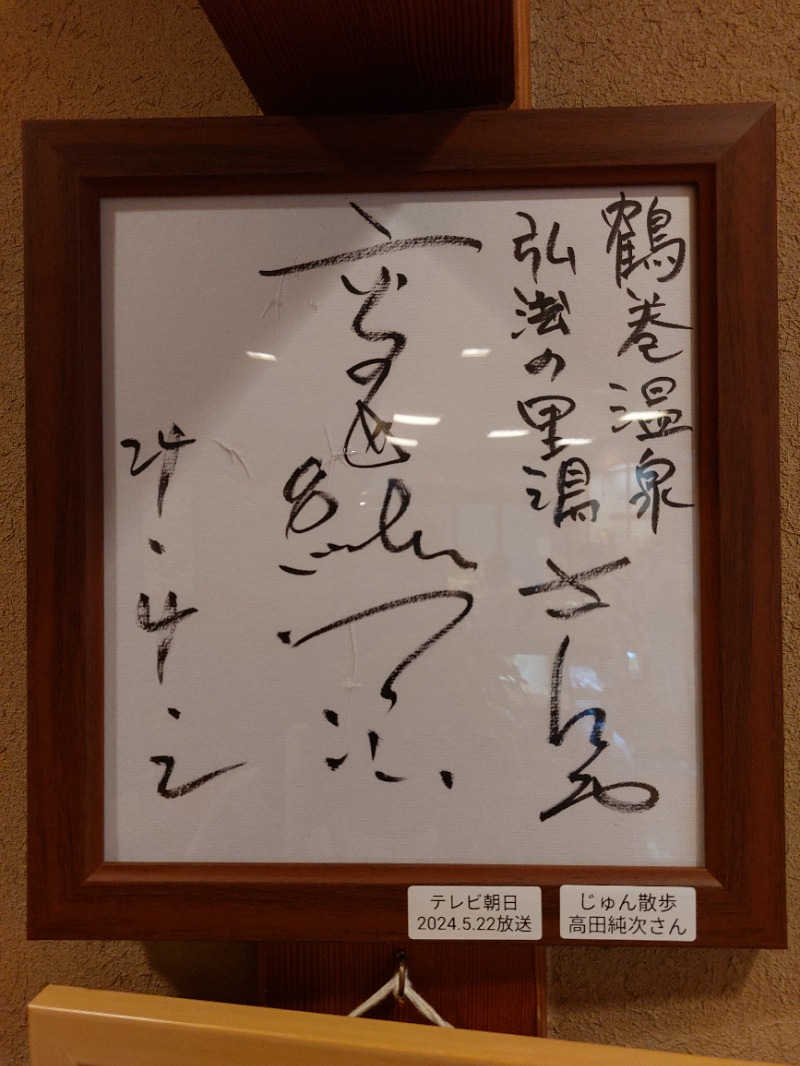 鶴巻温泉
弘法の里湯さん江
高田純次
24.4.2
テレビ朝日
2024.5.22放送
じゅん散歩
高田純次さん